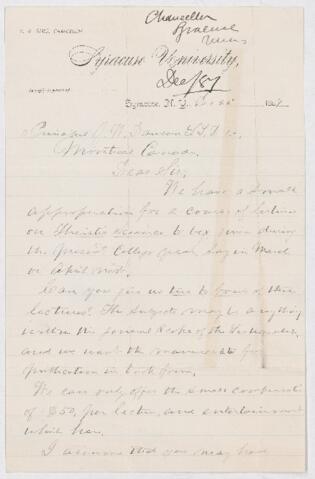 Chancellor
Syracuse
Univ.
C. N. SIMS, CHANCELLOR
Syracuse University,
Dec/87
Syracuse, N. Y. 188
Principal J. W. Dawson LL.D.
Montreal Canada.
Dear Sir,
We have a small
appropriation for a course of lectures
on Theistic to be given during
the present College year, say in March
or April next.
Can you give us two to four of these
lectures? The subjects may be anything
within the general scope of the
and we want the manuscripts for
publication in book form.
We can only offer the small compensation
of $50. per lecture, and entertainment
while here.
I assume that you may have